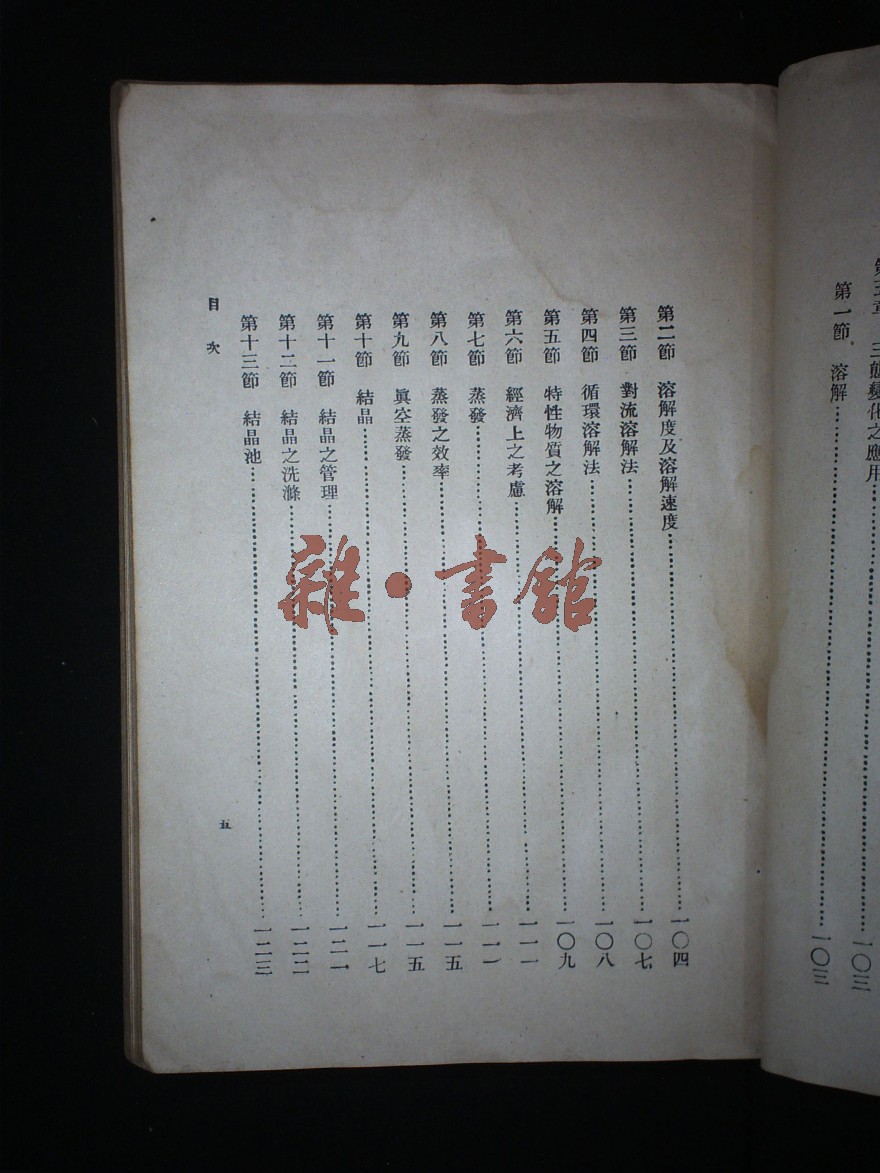 三態變化之應用……一〇三
第一節 溶解……一〇三
第二節 溶解度及溶解速度……一〇四
第三節 對流溶解法……一〇七
第四節 循環溶解法……一〇八
第五節 特性物質之溶解……一〇九
第六節 經濟上之考慮……一一一
第七節 蒸發……一一一
第八節 蒸發之效率……一一五
第九節 眞空蒸發……一一五
第十節 結晶……一一七
第十一節 結晶之管理……一二一
第十二節 結晶之洗滌……一二二
第十三節 結晶池……一二三
目次
五
雜·書館